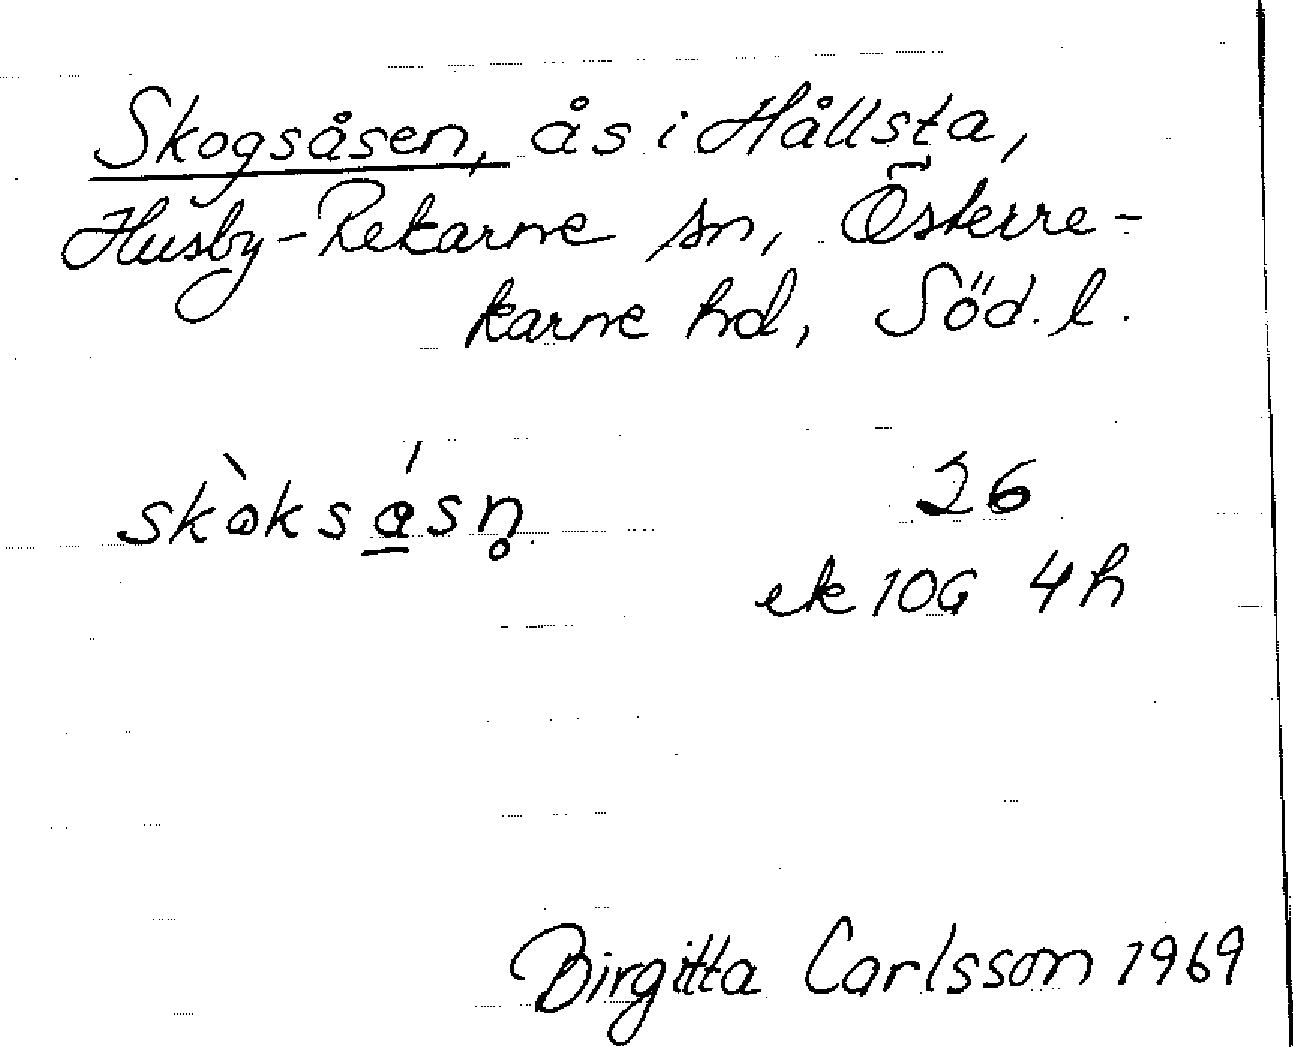 Skogsåsen, ås i Hållsta,
Husby-Rekarne sn, Österre-
karne hd, Söd. l.
skòksásn̥ 26
ek 10G 4h
Birgitta Carlsson 1969